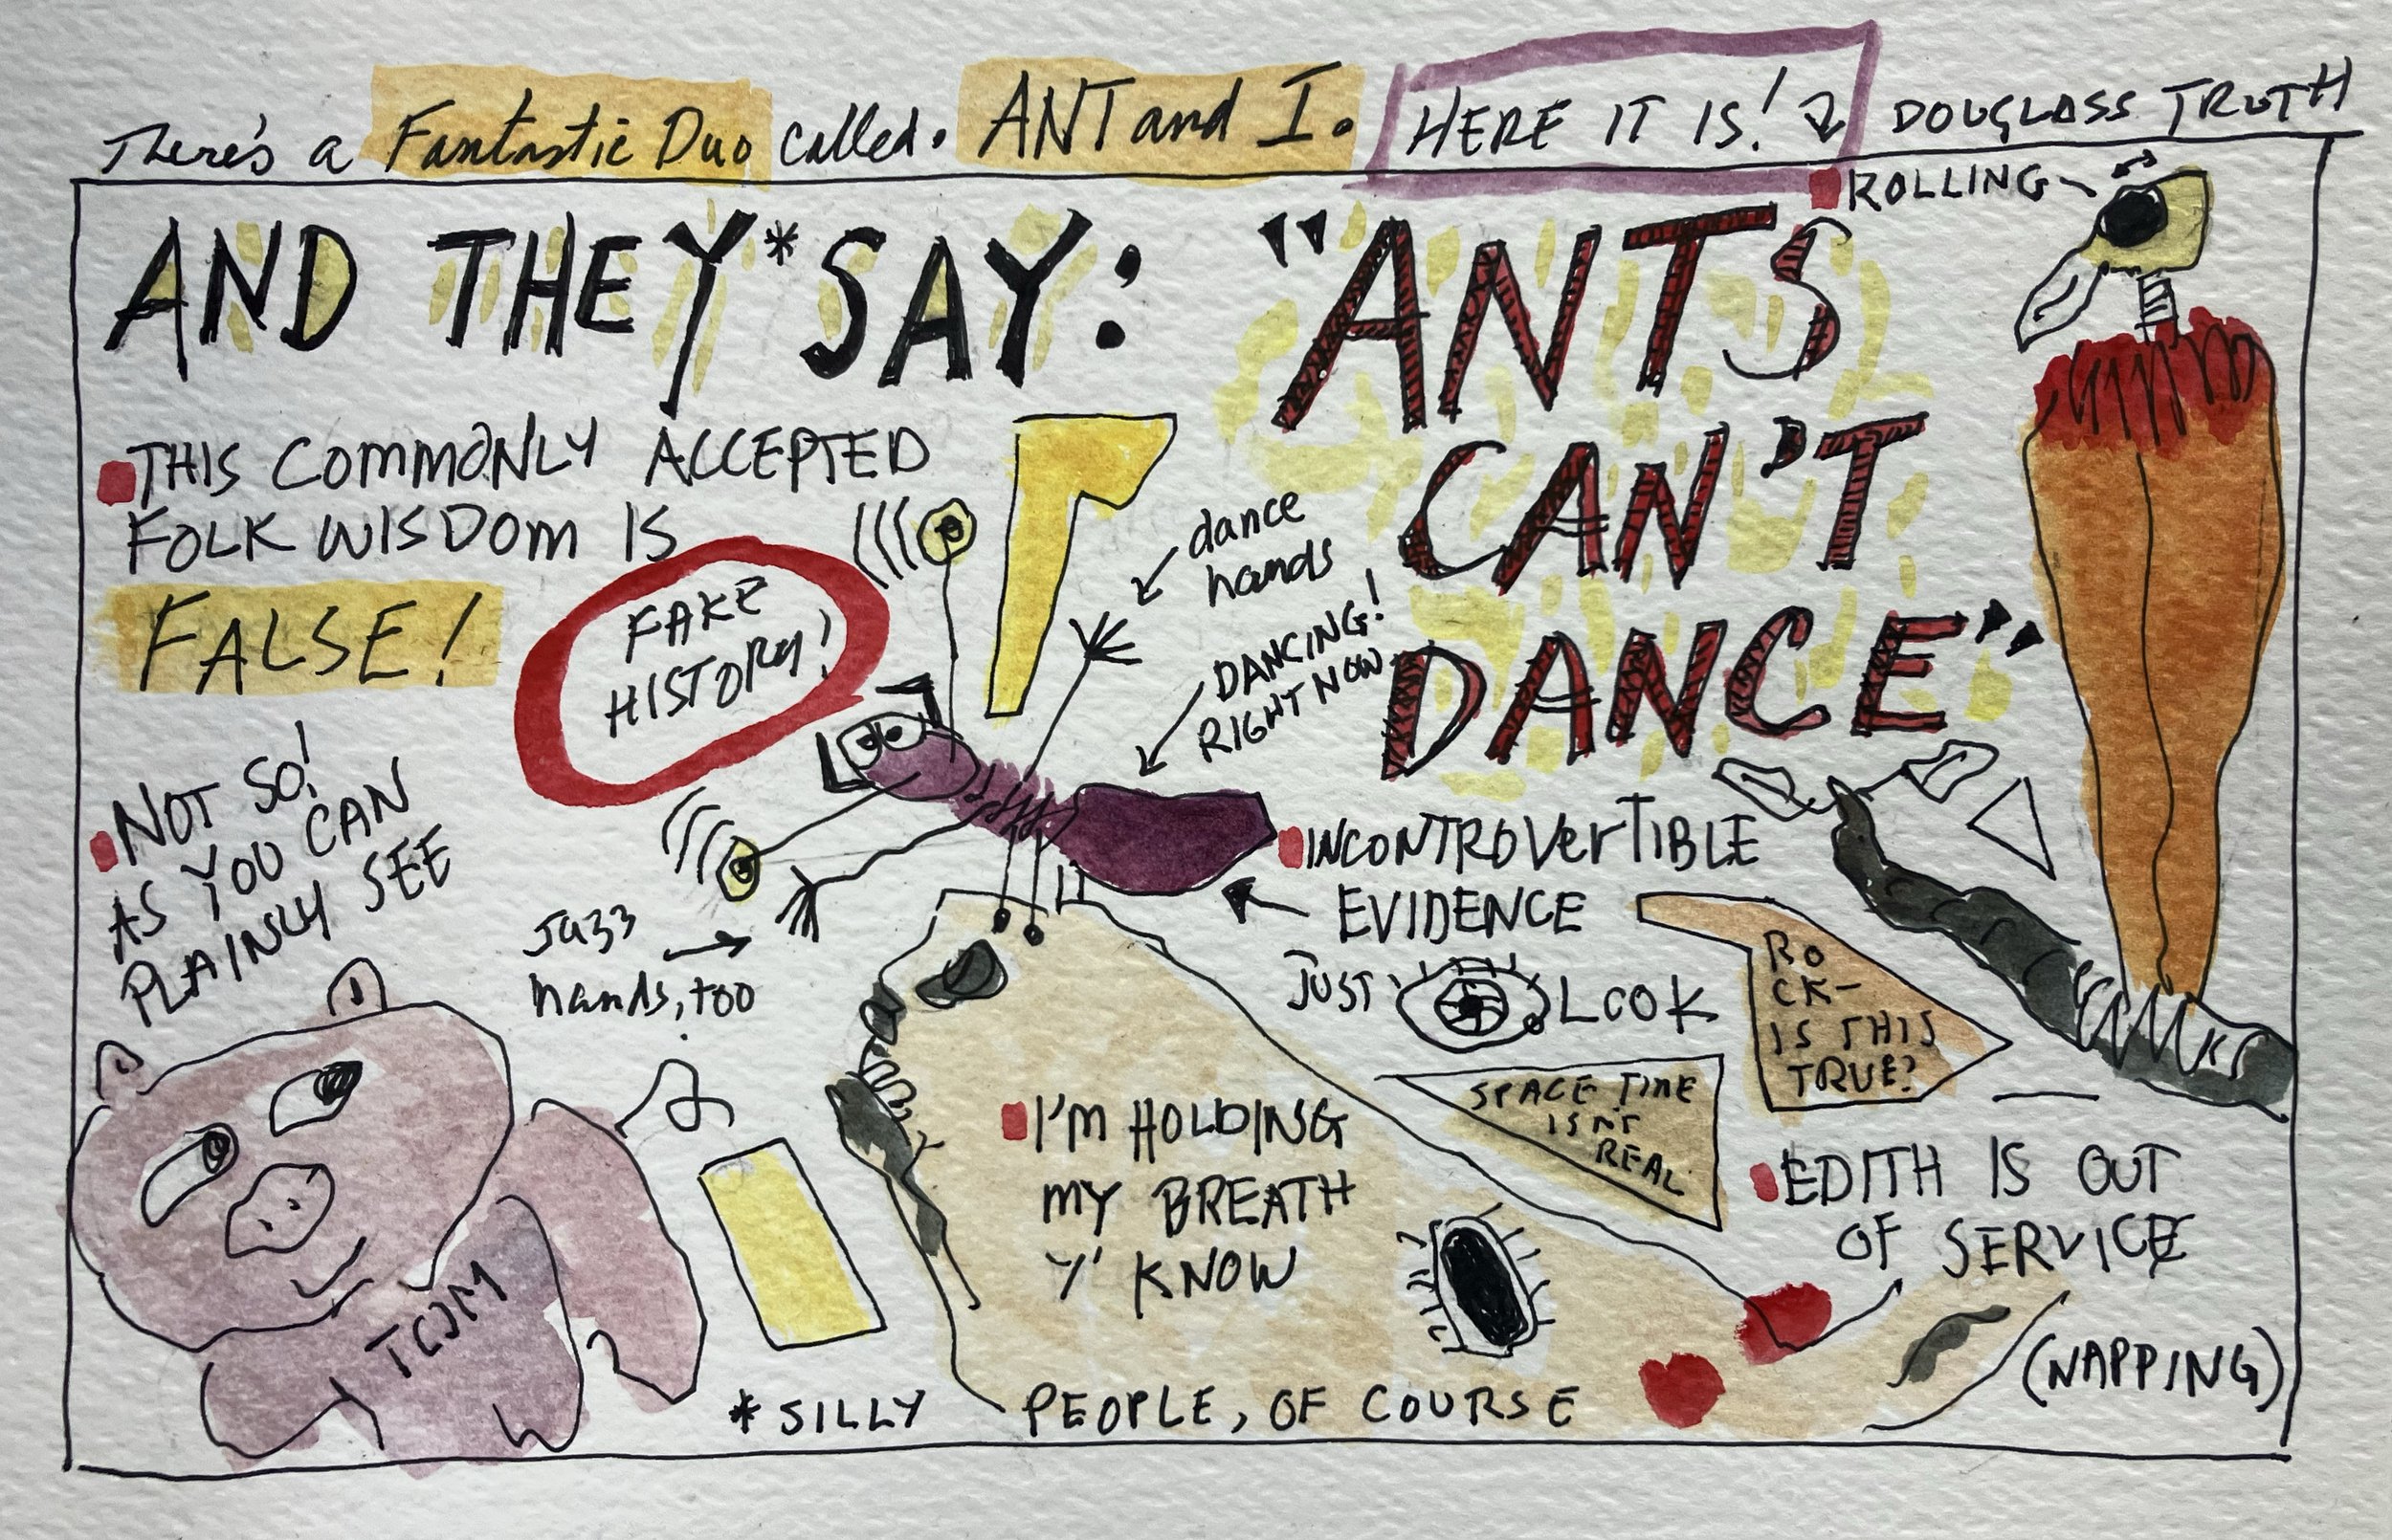 There's a Fantastic Duo called. ANT and I. HERE IT IS! DOUGLASS TRUTH
ROLLING
AND THEY* SAY:
"ANTS
CAN'T
DANCE"
THIS COMMONLY ACCEPTED
FOLK WISDOM IS
FALSE!
FAKE
HISTORY!
dance
hands
DANCING!
RIGHT NOW
NOT SO!
AS YOU CAN
PLAINLY SEE
Jazz
hands, too
INCONTROVERTIBLE
EVIDENCE
JUST LOOK
RO
CK-
IS THIS
TRUE?
SPACE TIME
ISN'T
REAL
I'M HOLDING
MY BREATH
Y' KNOW
EDITH IS OUT
OF SERVICE
(NAPPING)
TOM
*SILLY PEOPLE, OF COURSE